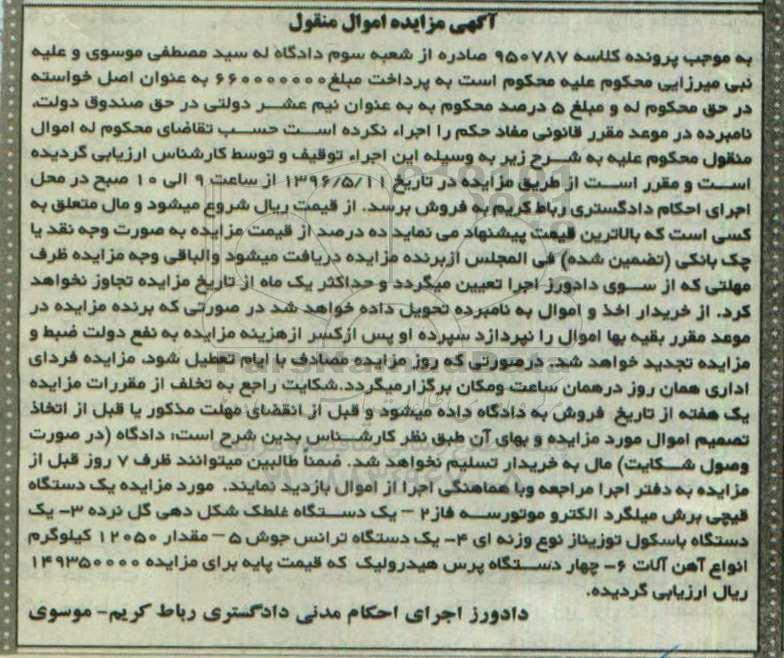 آگهی مزایده اموال منقول
به موجب پرونده کلاسه ۹۵۰۷۸۷ صادره از شعبه سوم دادگاه له سید مصطفی موسوی و علیه
نبی میرزایی محکوم علیه محکوم است به پرداخت مبلغ ۶۶۰۰۰۰۰۰۰ به عنوان اصل خواسته
در حق محکوم له و مبلغ ۵ درصد محکوم به به عنوان نیم عشر دولتی در حق صندوق دولت.
نامبرده در موعد مقرر قانونی مفاد حکم را اجراء نکرده است حسب تقاضای محکوم له اموال
منقول محکوم علیه به شرح زیر به وسیله این اجراء توقیف و توسط کارشناس ارزیابی گردیده
است و مقرر است از طریق مزایده در تاریخ ۱۳۹۶/۵/۱۱ از ساعت ۹ الی ۱۰ صبح در محل
اجرای احکام دادگستری رباط کریم به فروش برسد. از قیمت ریال شروع میشود و مال متعلق به
کسی است که بالاترین قیمت پیشنهاد می نماید ده درصد از قیمت مزایده به صورت وجه نقد یا
چک بانکی (تضمین شده) فی المجلس ازبرنده مزایده دریافت میشود والباقی وجه مزایده ظرف
مهلتی که از سوی دادورز اجرا تعیین میگردد و حداکثر یک ماه از تاریخ مزایده تجاوز نخواهد
کرد. از خریدار اخذ و اموال به نامبرده تحویل داده خواهد شد در صورتی که برنده مزایده در
موعد مقرر بقیه بها اموال را نپردازد سپرده او پس ازکسر ازهزینه مزایده به نفع دولت ضبط و
مزایده تجدید خواهد شد. درصورتی که روز مزایده مصادف با ایام تعطیل شود، مزایده فردای
اداری همان روز درهمان ساعت ومکان برگزارمیگردد.شکایت راجع به تخلف از مقررات مزایده
یک هفته از تاریخ فروش به دادگاه داده میشود و قبل از انقضای مهلت مذکور یا قبل از اتخاذ
تصمیم اموال مورد مزایده و بهای آن طبق نظر کارشناس بدین شرح است؛ دادگاه (در صورت
وصول شکایت) مال به خریدار تسلیم نخواهد شد. ضمناً طالبین میتوانند ظرف ۷ روز قبل از
مزایده به دفتر اجرا مراجعه وبا هماهنگی اجرا از اموال بازدید نمایند. مورد مزایده یک دستگاه
قیچی برش میلگرد الکترو موتورسه فاز۲ – یک دستگاه غلطک شکل دهی گل نرده ۳- یک
دستگاه باسکول توزیناز نوع وزنه ای ۴- یک دستگاه ترانس جوش ۵ – مقدار ۱۲۰۵۰ کیلوگرم
انواع آهن آلات ۶- چهار دستگاه پرس هیدرولیک که قیمت پایه برای مزایده ۱۴۹۳۵۰۰۰۰
ریال ارزیابی گردیده.
دادورز اجرای احکام مدنی دادگستری رباط کریم- موسوی